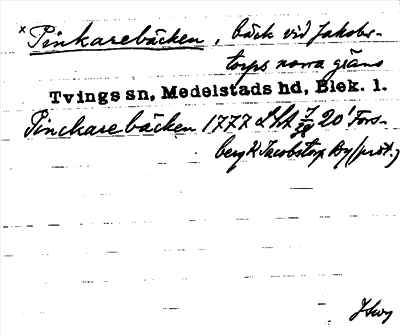 × Pinkarebäcken, bäck vid Jakobs-
torps norra gräns
Tvings sn, Medelstads hd, Blek. l.
Pinckarebäcken 1777 20' Fors-
berg Jacobstorp By (prot.)